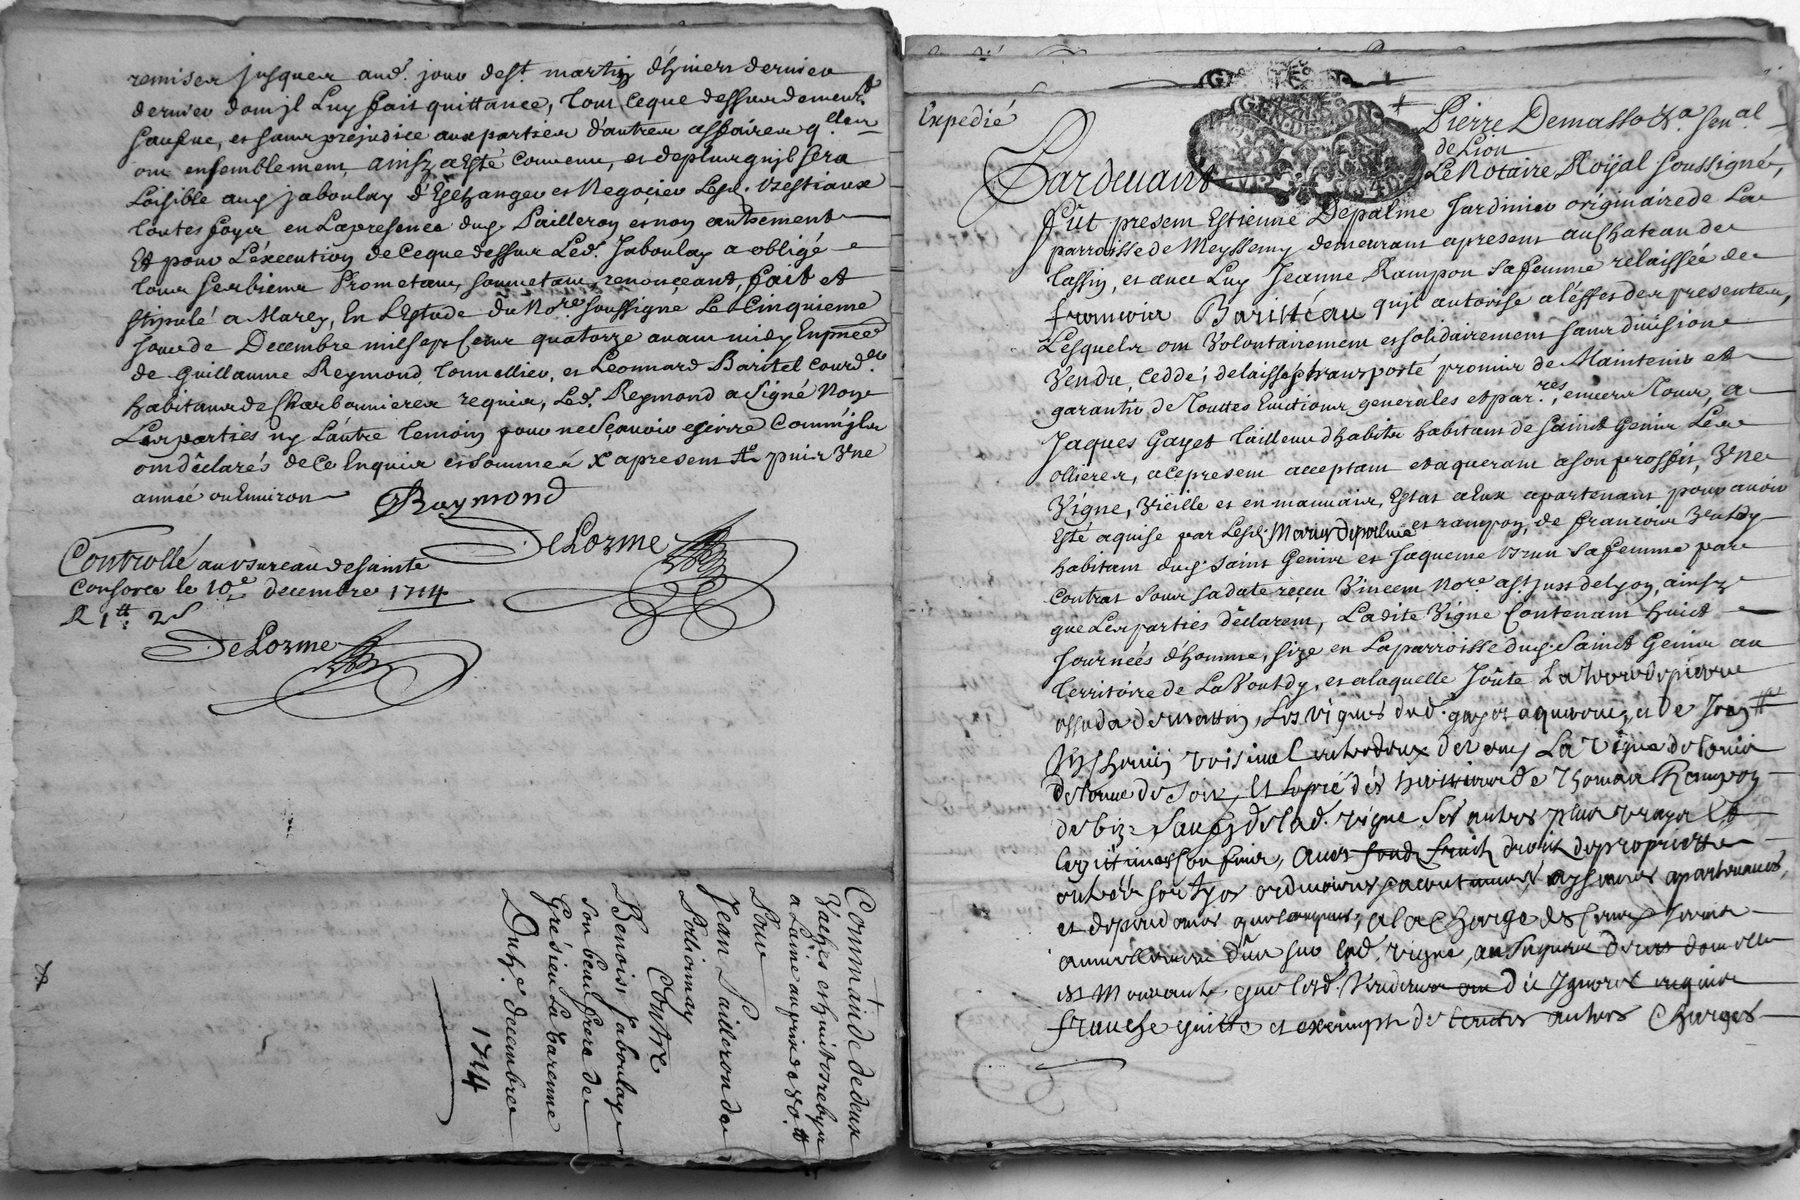 remises jusques aud. jour de st. martin d'hivers dernier
dernier dont jl Luy fait quittance, tout ceque dessus demeurt.
saufve, et sans prejudice aux parties d'autres affaires q'elles
ont ensemblement, ainsy a esté convenu, et deplus qu'jl sera
Loisible aud. jaboulay d'Eschanger et Negocier Lesd. Bestiaux
toutes foys en Lapresence dud. Pailleron et non autrement
Et pour L'éxecution de ceque dessus Led. Jaboulay a obligé
tous ses biens Prometant, soumetant, renonçeant, fait et
stipulé a Marcy, En L'Estude du No.re soussigné Le Cinquieme
Jour de Decembre mil sept Cent quatorze avant midy En pnce
de Guillaume Reymond tonnellier, et Leonnard Baritel Courd.er
habitants de Charbonnieres requis, Led. Reymond a signé Non
Les parties ny L'autre temoin pour ne sçavoir escrire Comm'jls
ont déclarés de ce Enquis et sommés apresent puis Une
année ou Environ
Raymond
DeLorme
Controllé au Bureau de Sainte
Consorce le 10.e decembre 1714
R 1tt 2s
DeLorme
Commande de deux
Vaches et huit brebys
a Laine au prix de 80.tt
Pour
Jean Pailleron de
Pollionnay
Contre
Benoist Jaboulay
son beaufrere de
Grésieu La Varenne
Du 5.e decembre
1714
Expedié
Pierre Demasso
de Lion
Pardevant Le Notaire Royal soussigné,
fût present Estienne Depalme Jardinier originaire de La
parroisse de Meyssemy demeurant apresent au Chateau de
tassin, et avec Luy Jeanne Rampon sa femme relaissée de
francois Baritteau qu'jl autorise a l'éffet des presentes,
Lesquels ont Volontairement et solidairement sans division
Vendu, Ceddé, delaissé et transporté promis de Maintenir et
garantir de touttes Evictions generales et par.res, envers tous, a
Jaques Gayet tailleur d'habits habitant de saint Genis Les
ollieres, a ce present acceptant et aquerant a son proffit, Une
Vigne, Vieille et en mauvais Estat a Eux apartenant pour avoir
Esté aquise par Lesd. Maries Depalme et rampon, de francois
habitant dud. saint Genis et Jaqueme Brun sa femme par
Contrat sous sa date reçeu Vincent No.re a st. just de Lyon, ainsy
que Les parties déclarent, Ladite Vigne Contenant huict
Journées d'homme, size en Laparroisse dud. Sainct Genis au
territoire de La Voutdy, et a laquelle Joûte La terre de pierre
de matin, Les vignes dud. gayet aquereur, et de
Un Chemin voisinal entredeux de vent, La vigne de
de soir, Et Le pré des heritiers de Thomas Rampon
de bize, sauf de lad. vigne ses autres plus vrays Et
legitimes confins, avec fonds fruits droits de proprietté
entrées sorties ordinaires et acoutumés aysances apartenances,
et dependances quelconques, a la Charge des Cens et servis
annuellement dûs sur lad. vigne, au seigneur de
est Mouvante que lesd. Vendeurs ont dit Ignorer enquis
franche quitte et exempte de toutes autres Charges